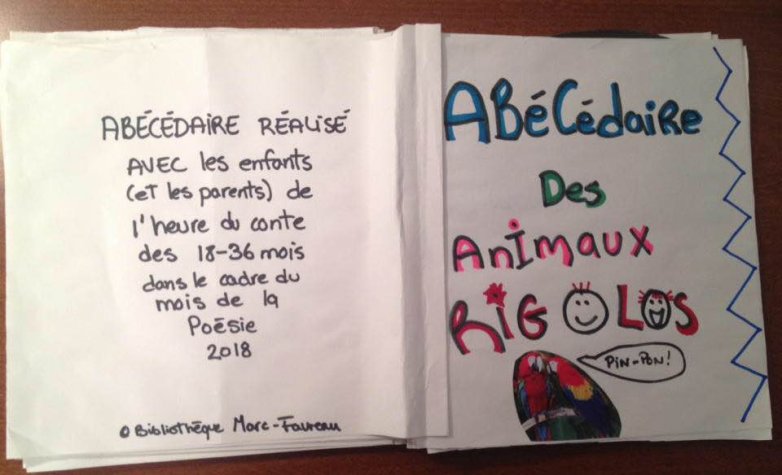 ABÉCÉDAIRE RÉALISÉ
AVEC les enfants
(et les parents) de
l'heure du conte
des 18-36 mois
dans le cadre du
mois de la
Poésie
2018
© Bibliothèque Marc-Favreau
ABéCédaiRe
Des
AnImaux
RiGOLOS
PiN-PoN!